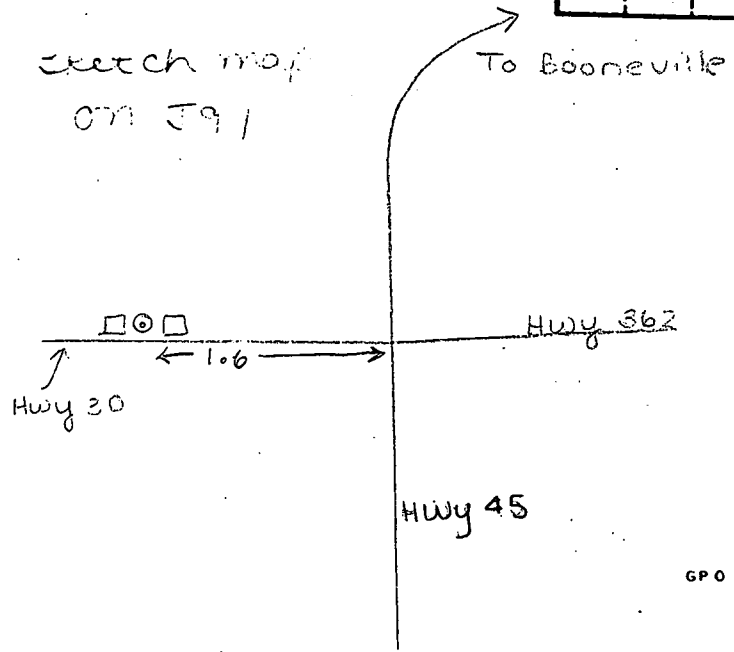 sketch map
on J91
To Booneville
Hwy 362
1.6
Hwy 30
Hwy 45
GPO